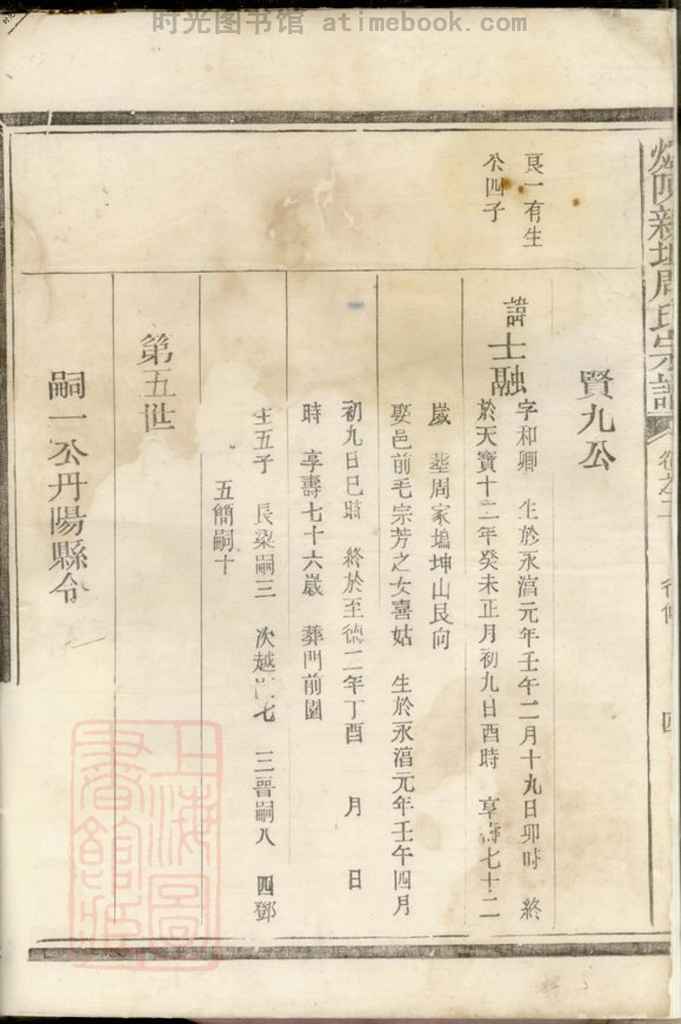 时光图书馆 atimebook.com
新周氏宗譜
卷之二
四
良一有生
公四子
賢九公
諱士融
字和卿 生於永湻元年壬午二月十九日卯時 終
於天寶十二年癸未正月初九日酉時 享壽七十二
歲 塟周家塢坤山艮向
娶邑前毛宗芳之女喜姑 生於永湻元年壬午四月
初九日巳時 終於至德二年丁酉 月 日
時 享壽七十六歲 葬門前園
生五子 長梁嗣三 次越嗣七 三晉嗣八 四鄧
五簡嗣十
第五世
嗣一公丹陽縣令
上海圖
書館藏